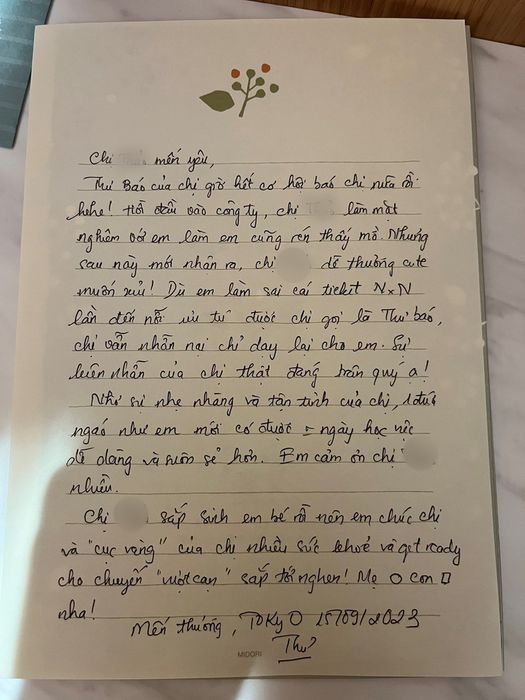 Chị mến yêu,
Thư Báo của chị giờ hết cơ hội báo chị nữa rồi
hehe! Hồi đầu vào công ty, chị làm mặt
nghiêm với em làm em cũng rén thấy mồ. Nhưng
sau này mới nhận ra, chị dễ thương cute
muốn xỉu! Dù em làm sai cái ticket N×N
lần đến nỗi ưu tư được chị gọi là Thư báo,
chị vẫn nhẫn nại chỉ dạy lại cho em. Sự
kiên nhẫn của chị thật đáng trân quý ạ!
Nhờ sự nhẹ nhàng và tận tình của chị, 1 đứa
ngáo như em mới có được = ngày học việc
dễ dàng và suôn sẻ hơn. Em cảm ơn chị
nhiều.
Chị sắp sinh em bé rồi nên em chúc chị
và "cục vàng" của chị nhiều sức khoẻ và get ready
cho chuyến "vượt cạn" sắp tới nghen! Mẹ O con □
nha!
Mến thương, TOKYO 15/09/2023
Thư
MIDORI